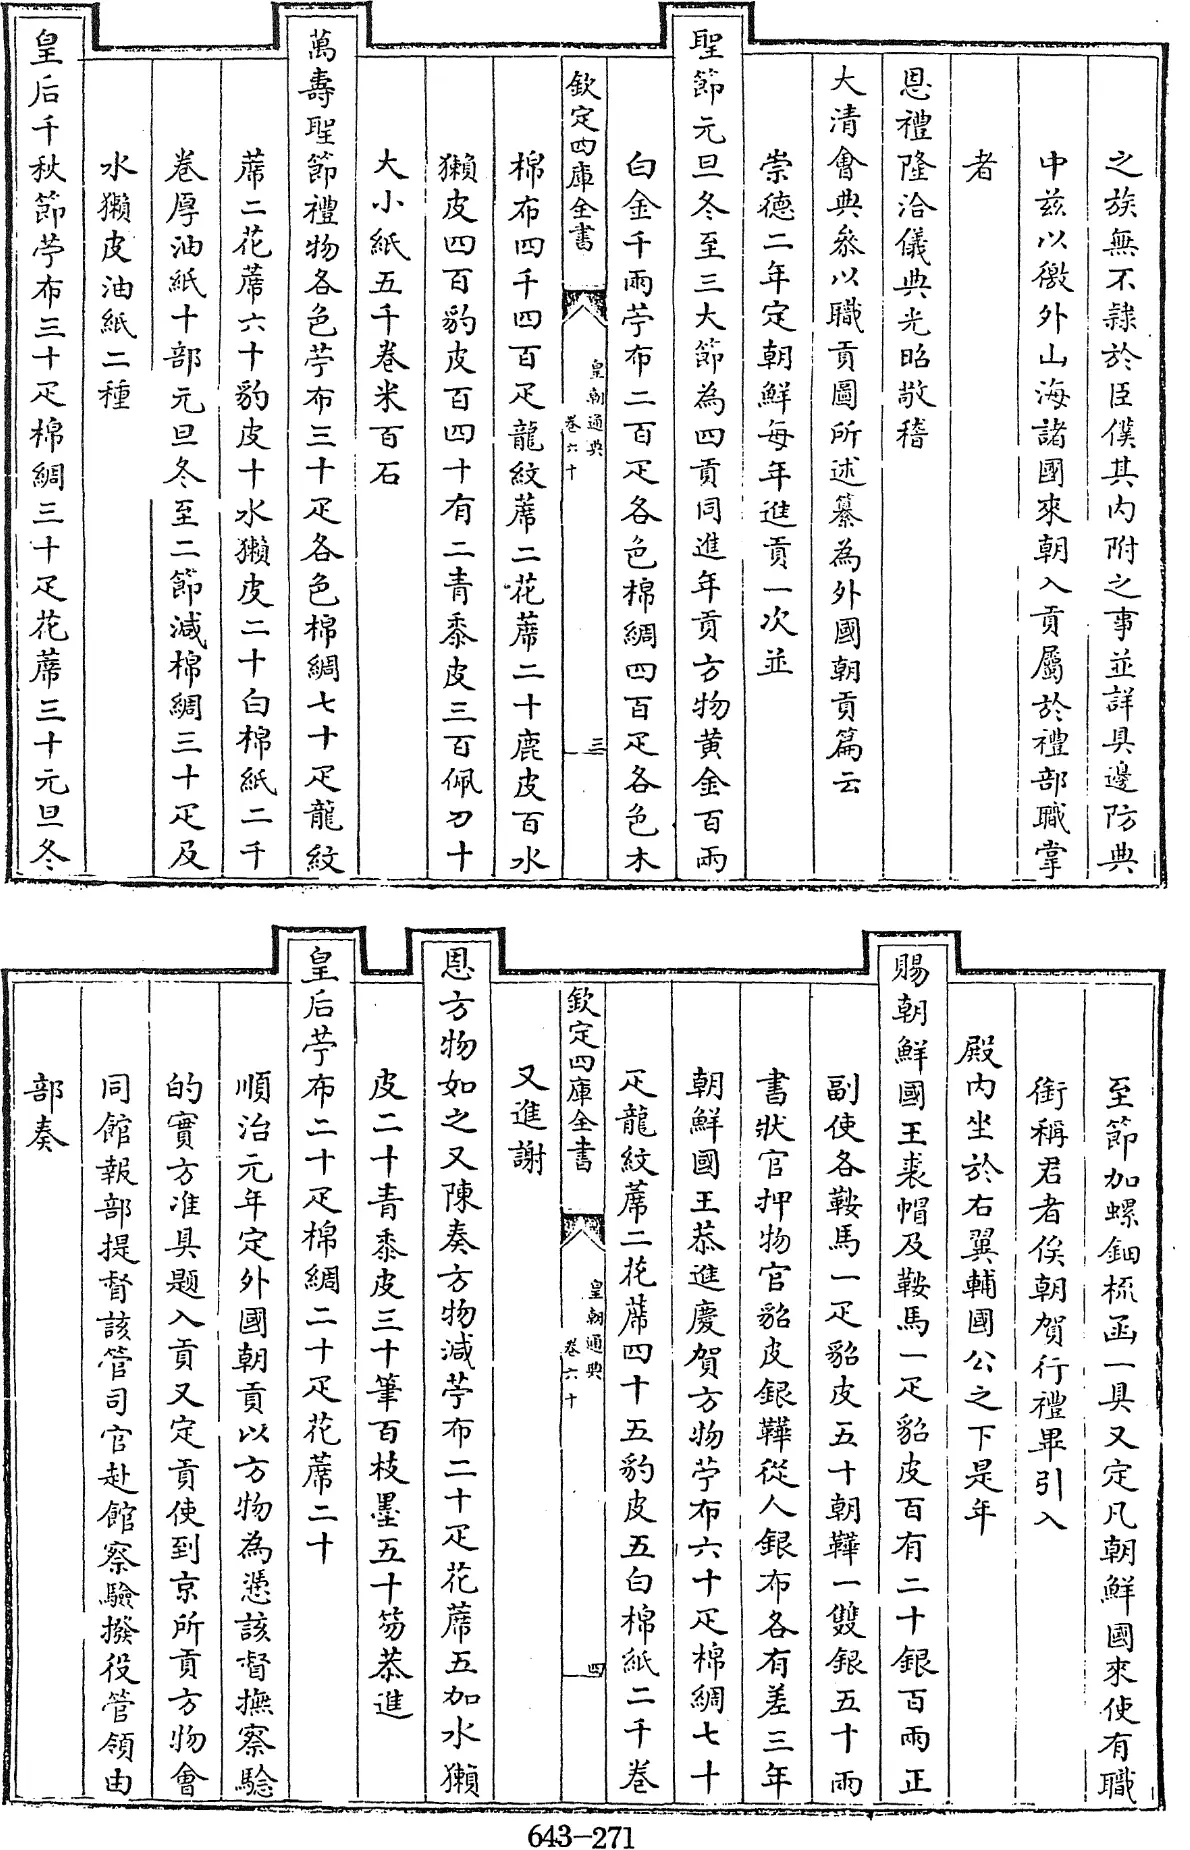 之族無不隷於臣僕其内附之事並詳具邊防典
中兹以徼外山海諸國來朝入貢屬於禮部職掌
者
恩禮隆洽儀典光昭敬稽
大清會典叅以職貢圖所述纂為外國朝貢篇云
崇徳二年定朝鮮每年進貢一次並
聖節元旦冬至三大節為四貢同進年貢方物黄金百兩
白金千兩苧布二百疋各色棉綢四百疋各色木
欽定四庫全書
皇朝通典
卷六十
三
棉布四千四百疋龍紋蓆二花蓆二十鹿皮百水
獺皮四百豹皮百四十有二青黍皮三百佩刀十
大小紙五千卷米百石
萬壽聖節禮物各色苧布三十疋各色棉綢七十疋龍紋
蓆二花蓆六十豹皮十水獺皮二十白棉紙二千
卷厚油紙十部元旦冬至二節減棉綢三十疋及
水獺皮油紙二種
皇后千秋節苧布三十疋棉綢三十疋花蓆三十元旦冬
至節加螺鈿梳函一具又定凡朝鮮國來使有職
銜稱君者俟朝賀行禮畢引入
殿内坐於右翼輔國公之下是年
賜朝鮮國王裘帽及鞍馬一疋貂皮百有二十銀百兩正
副使各鞍馬一疋貂皮五十朝鞾一雙銀五十兩
書狀官押物官貂皮銀鞾從人銀布各有差三年
朝鮮國王恭進慶賀方物苧布六十疋棉綢七十
疋龍紋蓆二花蓆四十五豹皮五白棉紙二千卷
欽定四庫全書
皇朝通典
卷六十
四
又進謝
恩方物如之又陳奏方物減苧布二十疋花蓆五加水獺
皮二十青黍皮三十筆百枝墨五十笏恭進
皇后苧布二十疋棉綢二十疋花蓆二十
順治元年定外國朝貢以方物為憑該督撫察驗
的實方准具題入貢又定貢使到京所貢方物會
同館報部提督該管司官赴館察驗撥役管領由
部奏
643-271